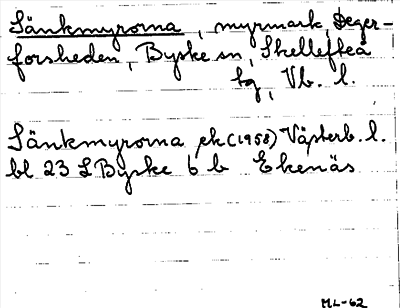 Sänkmyrorna, myrmark, Deger-
forsheden, Byske sn, Skellefteå
tg, Vb. l.
Sänkmyrorna ek (1958) Västerb. l.
bl 23 L Byske 6 b Ekenäs
ML-62